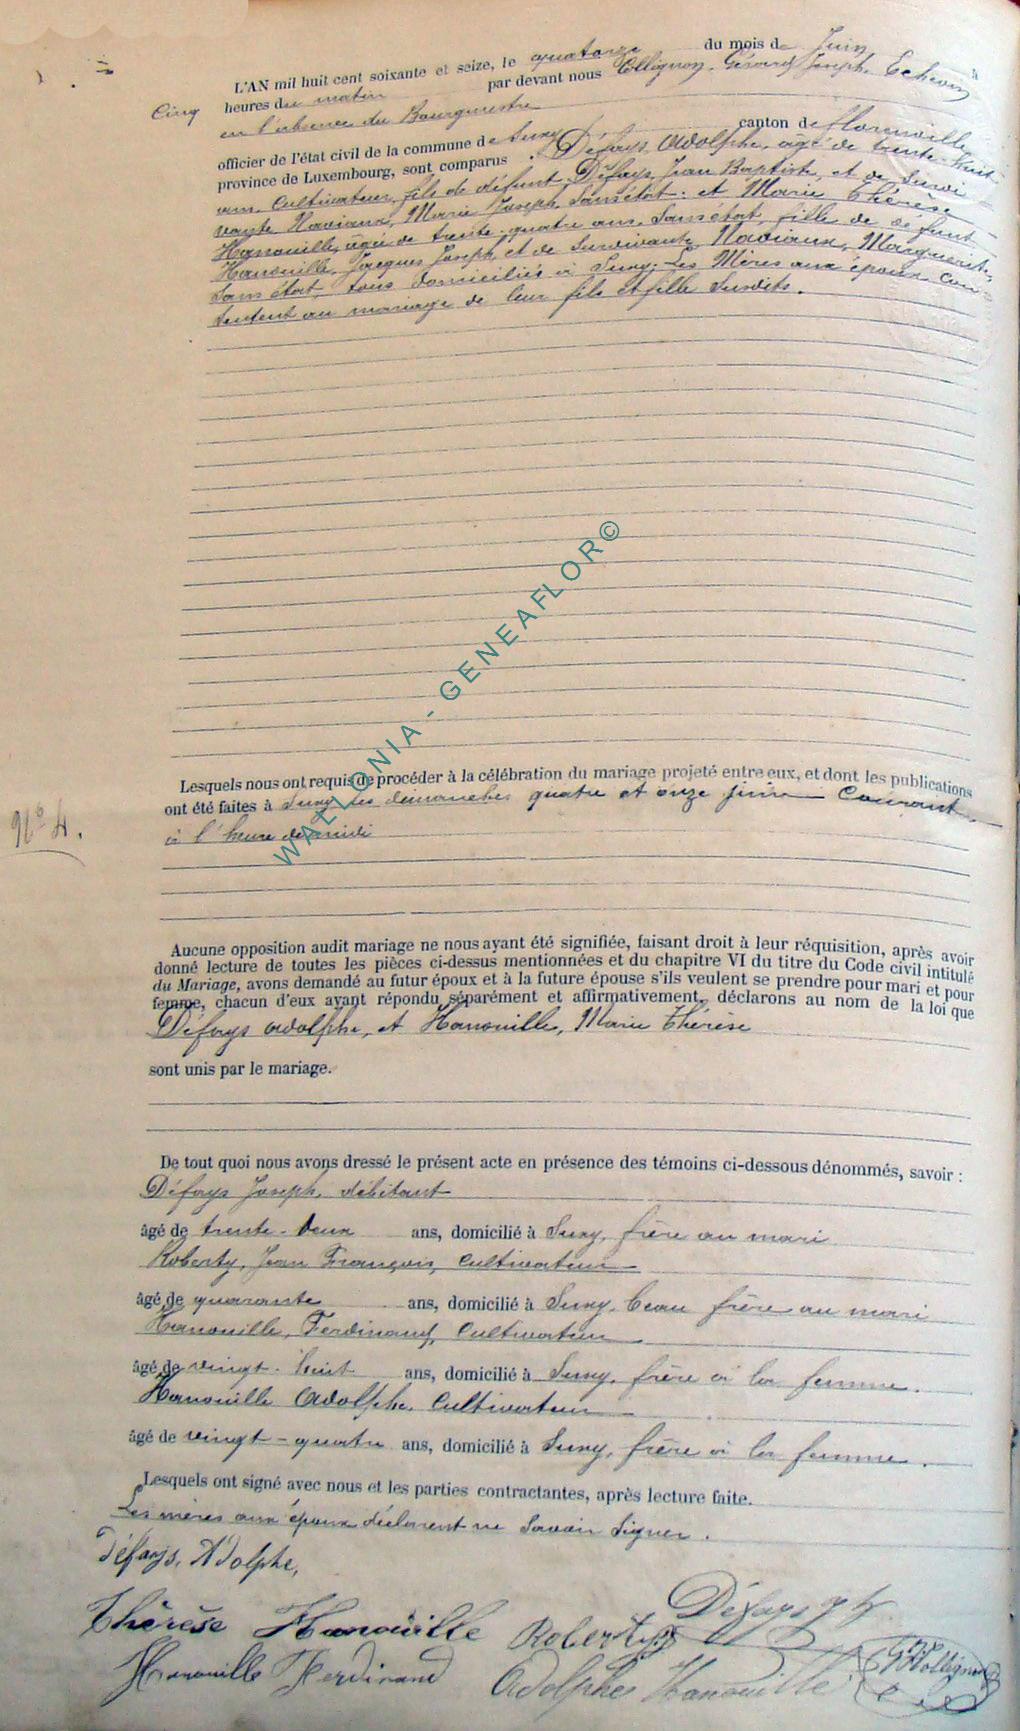 L'AN mil huit cent soixante et seize, le quatorze du mois de Juin à
Cinq heures du matin par devant nous Collignon, Gérard Joseph, Echevin
en l'absence du Bourgmestre
officier de l'état civil de la commune de Suny canton de florenville
province de Luxembourg, sont comparus Défays Adolphe, âgé de trente-huit
ans, Cultivateur, fils de défunt Défays, Jean Baptiste, et de Survi
vante Nadiaux, Marie Joseph, Sans état. et Marie Thérèse
Hanouille, âgée de trente-quatre ans, Sans état, fille de défunt
Hanouille, Jacques Joseph et de Survivante Nadiaux, Marguerite,
Sans état, tous domiciliés à Suny. Les Mères aux époux con-
sentent au mariage de leur fils et fille Susdits.
WALLONIA - GENEAFLOR©
Lesquels nous ont requis de procéder à la célébration du mariage projeté entre eux, et dont les publications
ont été faites à Suny les dimanches quatre et onze juin Courant
à l'heure de midi
N° 4.
Aucune opposition audit mariage ne nous ayant été signifiée, faisant droit à leur réquisition, après avoir
donné lecture de toutes les pièces ci-dessus mentionnées et du chapitre VI du titre du Code civil intitulé
du Mariage, avons demandé au futur époux et à la future épouse s'ils veulent se prendre pour mari et pour
femme, chacun d'eux ayant répondu séparément et affirmativement, déclarons au nom de la loi que
Défays Adolphe, et Hanouille, Marie Thérèse
sont unis par le mariage.
De tout quoi nous avons dressé le présent acte en présence des témoins ci-dessous dénommés, savoir :
Défays Joseph, débitant
âgé de trente-deux ans, domicilié à Suny, frère au mari
Roberty, Jean François, Cultivateur
âgé de quarante ans, domicilié à Suny, beau frère au mari
Hanouille, Ferdinand, Cultivateur
âgé de vingt-huit ans, domicilié à Suny, frère à la femme.
Hanouille Adolphe, Cultivateur
âgé de vingt-quatre ans, domicilié à Suny, frère à la femme.
Lesquels ont signé avec nous et les parties contractantes, après lecture faite.
Les mères aux époux déclarent ne Savoir Signer.
Défays, Adolphe,
Défays
Thérèse Hanouille Roberty
Hanouille Ferdinand Adolphe Hanouille Collignon